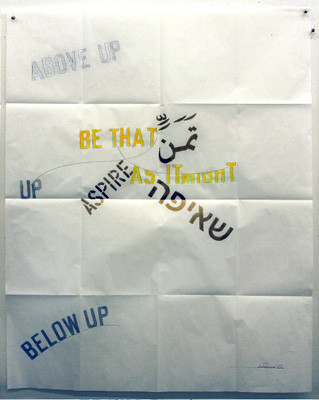 ABOVE UP
BE THAT
تَمَنَّ
AS IT MIGHT
UP
ASPIRE
שאיפה
BELOW UP